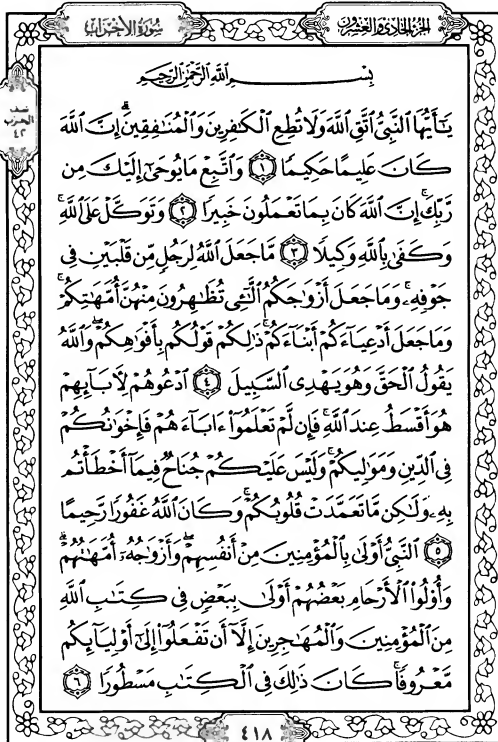 الجزء الحادي والعشرون
سورة الأحزاب
نصف
الحزب
٤٢
بِسْمِ اللَّهِ الرَّحْمَٰنِ الرَّحِيمِ
يَٰٓأَيُّهَا ٱلنَّبِىُّ ٱتَّقِ ٱللَّهَ وَلَا تُطِعِ ٱلْكَٰفِرِينَ وَٱلْمُنَٰفِقِينَ ۗ إِنَّ ٱللَّهَ
كَانَ عَلِيمًا حَكِيمًا ١ وَٱتَّبِعْ مَا يُوحَىٰٓ إِلَيْكَ مِن
رَّبِّكَ ۚ إِنَّ ٱللَّهَ كَانَ بِمَا تَعْمَلُونَ خَبِيرًا ٢ وَتَوَكَّلْ عَلَى ٱللَّهِ ۚ
وَكَفَىٰ بِٱللَّهِ وَكِيلًا ٣ مَّا جَعَلَ ٱللَّهُ لِرَجُلٍ مِّن قَلْبَيْنِ فِى
جَوْفِهِۦ ۚ وَمَا جَعَلَ أَزْوَٰجَكُمُ ٱلَّٰٓـِٔى تُظَٰهِرُونَ مِنْهُنَّ أُمَّهَٰتِكُمْ ۚ
وَمَا جَعَلَ أَدْعِيَآءَكُمْ أَبْنَآءَكُمْ ۚ ذَٰلِكُمْ قَوْلُكُم بِأَفْوَٰهِكُمْ ۖ وَٱللَّهُ
يَقُولُ ٱلْحَقَّ وَهُوَ يَهْدِى ٱلسَّبِيلَ ٤ ٱدْعُوهُمْ لِءَابَآئِهِمْ
هُوَ أَقْسَطُ عِندَ ٱللَّهِ ۚ فَإِن لَّمْ تَعْلَمُوٓا۟ ءَابَآءَهُمْ فَإِخْوَٰنُكُمْ
فِى ٱلدِّينِ وَمَوَٰلِيكُمْ ۚ وَلَيْسَ عَلَيْكُمْ جُنَاحٌ فِيمَآ أَخْطَأْتُم
بِهِۦ وَلَٰكِن مَّا تَعَمَّدَتْ قُلُوبُكُمْ ۚ وَكَانَ ٱللَّهُ غَفُورًا رَّحِيمًا
٥ ٱلنَّبِىُّ أَوْلَىٰ بِٱلْمُؤْمِنِينَ مِنْ أَنفُسِهِمْ ۖ وَأَزْوَٰجُهُۥٓ أُمَّهَٰتُهُمْ ۗ
وَأُو۟لُوا۟ ٱلْأَرْحَامِ بَعْضُهُمْ أَوْلَىٰ بِبَعْضٍ فِى كِتَٰبِ ٱللَّهِ
مِنَ ٱلْمُؤْمِنِينَ وَٱلْمُهَٰجِرِينَ إِلَّآ أَن تَفْعَلُوٓا۟ إِلَىٰٓ أَوْلِيَآئِكُم
مَّعْرُوفًا ۚ كَانَ ذَٰلِكَ فِى ٱلْكِتَٰبِ مَسْطُورًا ٦
٤١٨